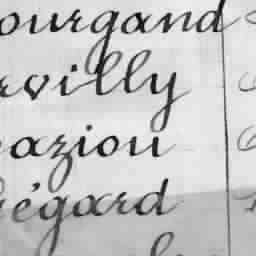 ourgand
rvilly
aziou
régard